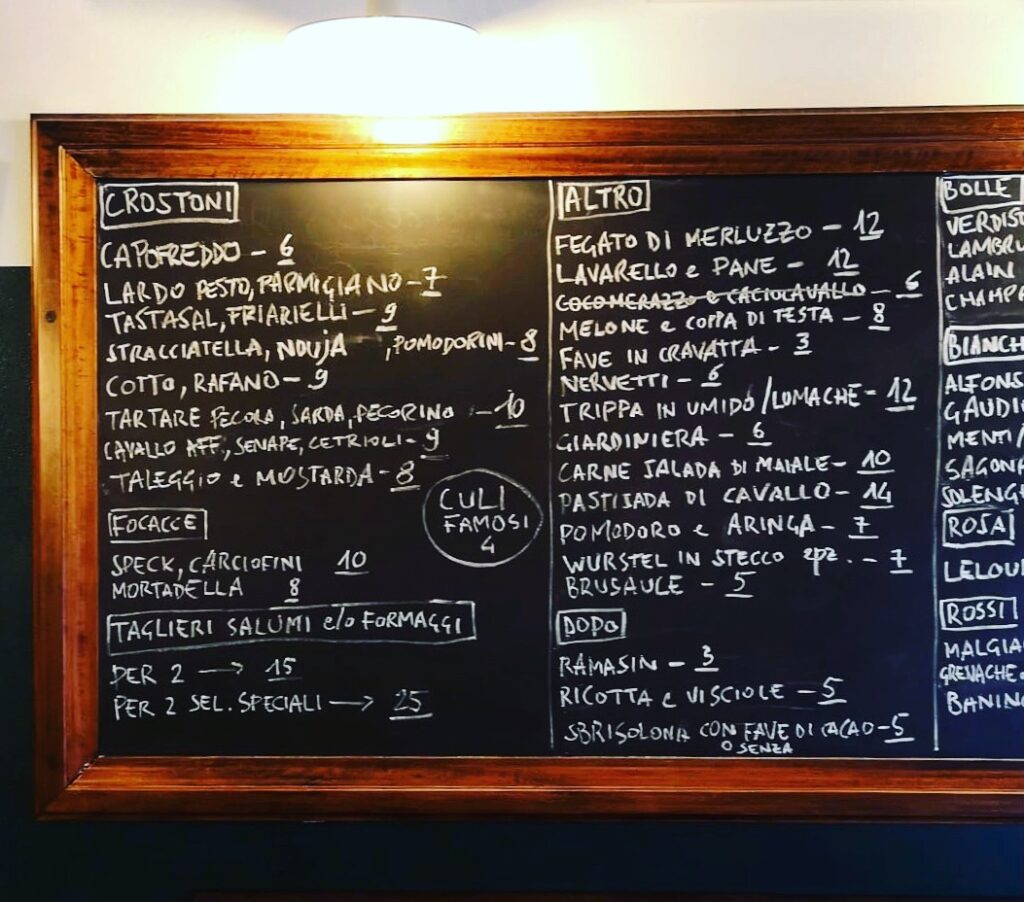 CROSTONI
CAPOFREDDO - 6
LARDO PESTO, PARMIGIANO - 7
TASTASAL, FRIARIELLI - 9
STRACCIATELLA, NDUJA , POMODORINI - 8
COTTO, RAFANO - 9
TARTARE PECORA, SARDA, PECORINO - 10
CAVALLO AFF, SENAPE, CETRIOLI - 9
TALEGGIO e MOSTARDA - 8
CULI
FAMOSI
4
FOCACCE
SPECK, CARCIOFINI 10
MORTADELLA 8
TAGLIERI SALUMI e/o FORMAGGI
PER 2 → 15
PER 2 SEL. SPECIALI → 25
ALTRO
FEGATO DI MERLUZZO - 12
LAVARELLO e PANE - 12
COCOMERAZZO e CACIOCAVALLO - 6
MELONE e COPPA DI TESTA - 8
FAVE IN CRAVATTA - 3
NERVETTI - 6
TRIPPA IN UMIDO / LUMACHE - 12
GIARDINIERA - 6
CARNE SALADA DI MAIALE - 10
PASTISADA DI CAVALLO - 14
POMODORO e ARINGA - 7
WURSTEL IN STECCO 2pz. - 7
BRUSAULE - 5
DOPO
RAMASIN - 3
RICOTTA e VISCIOLE - 5
SBRISOLONA CON FAVE DI CACAO - 5
O SENZA
BOLLE
VERDIS
LAMBRU
ALAIN
CHAMPA
BIANCH
ALFONS
GAUDI
MENTI/
SAGONA
SOLENG
ROSA
LELOU
ROSSI
MALGIA
GRENACHE
BANIN